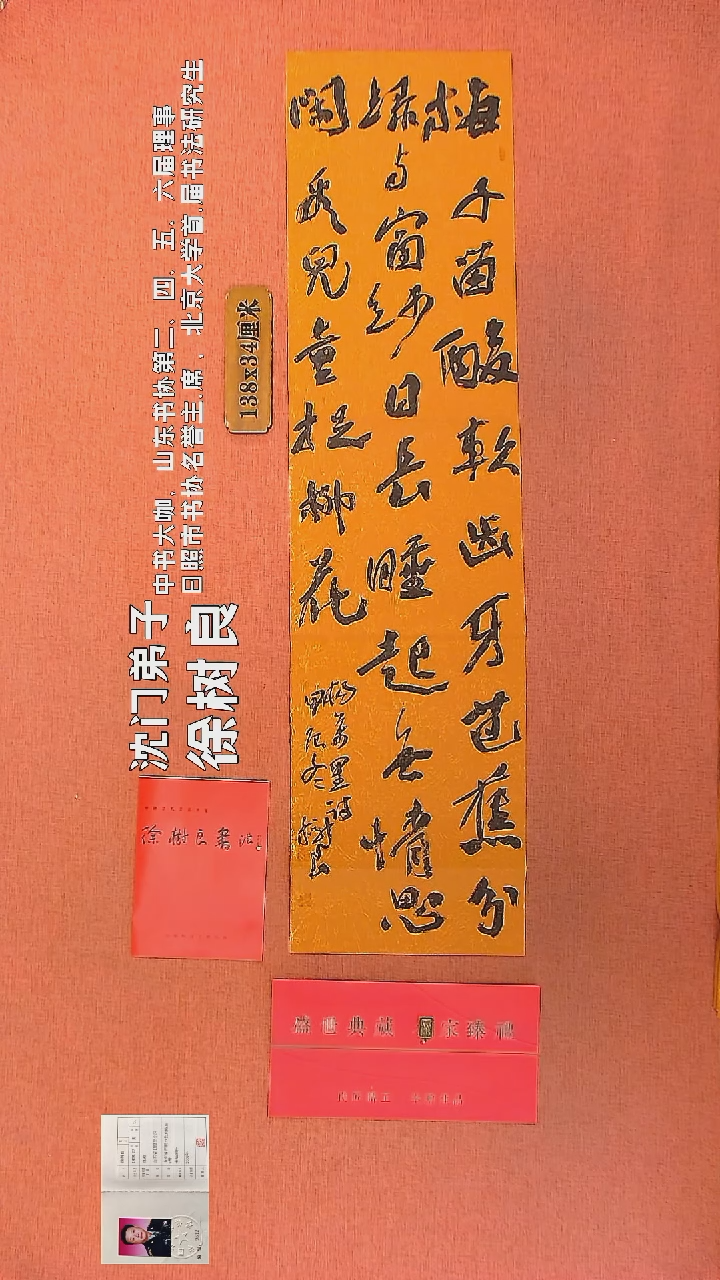 梅子留酸軟齒牙芭蕉分
綠与窗紗日長睡起無情思
閑看兒童捉柳花
楊萬里詩
冬 樹良
138x34厘米
中书大咖、山东书协第二、四、五、六届理事
日照市书协名誉主席、北京大学首届书法研究生
沈门弟子
徐树良
徐樹良書法
盛世典藏 國宝臻禮